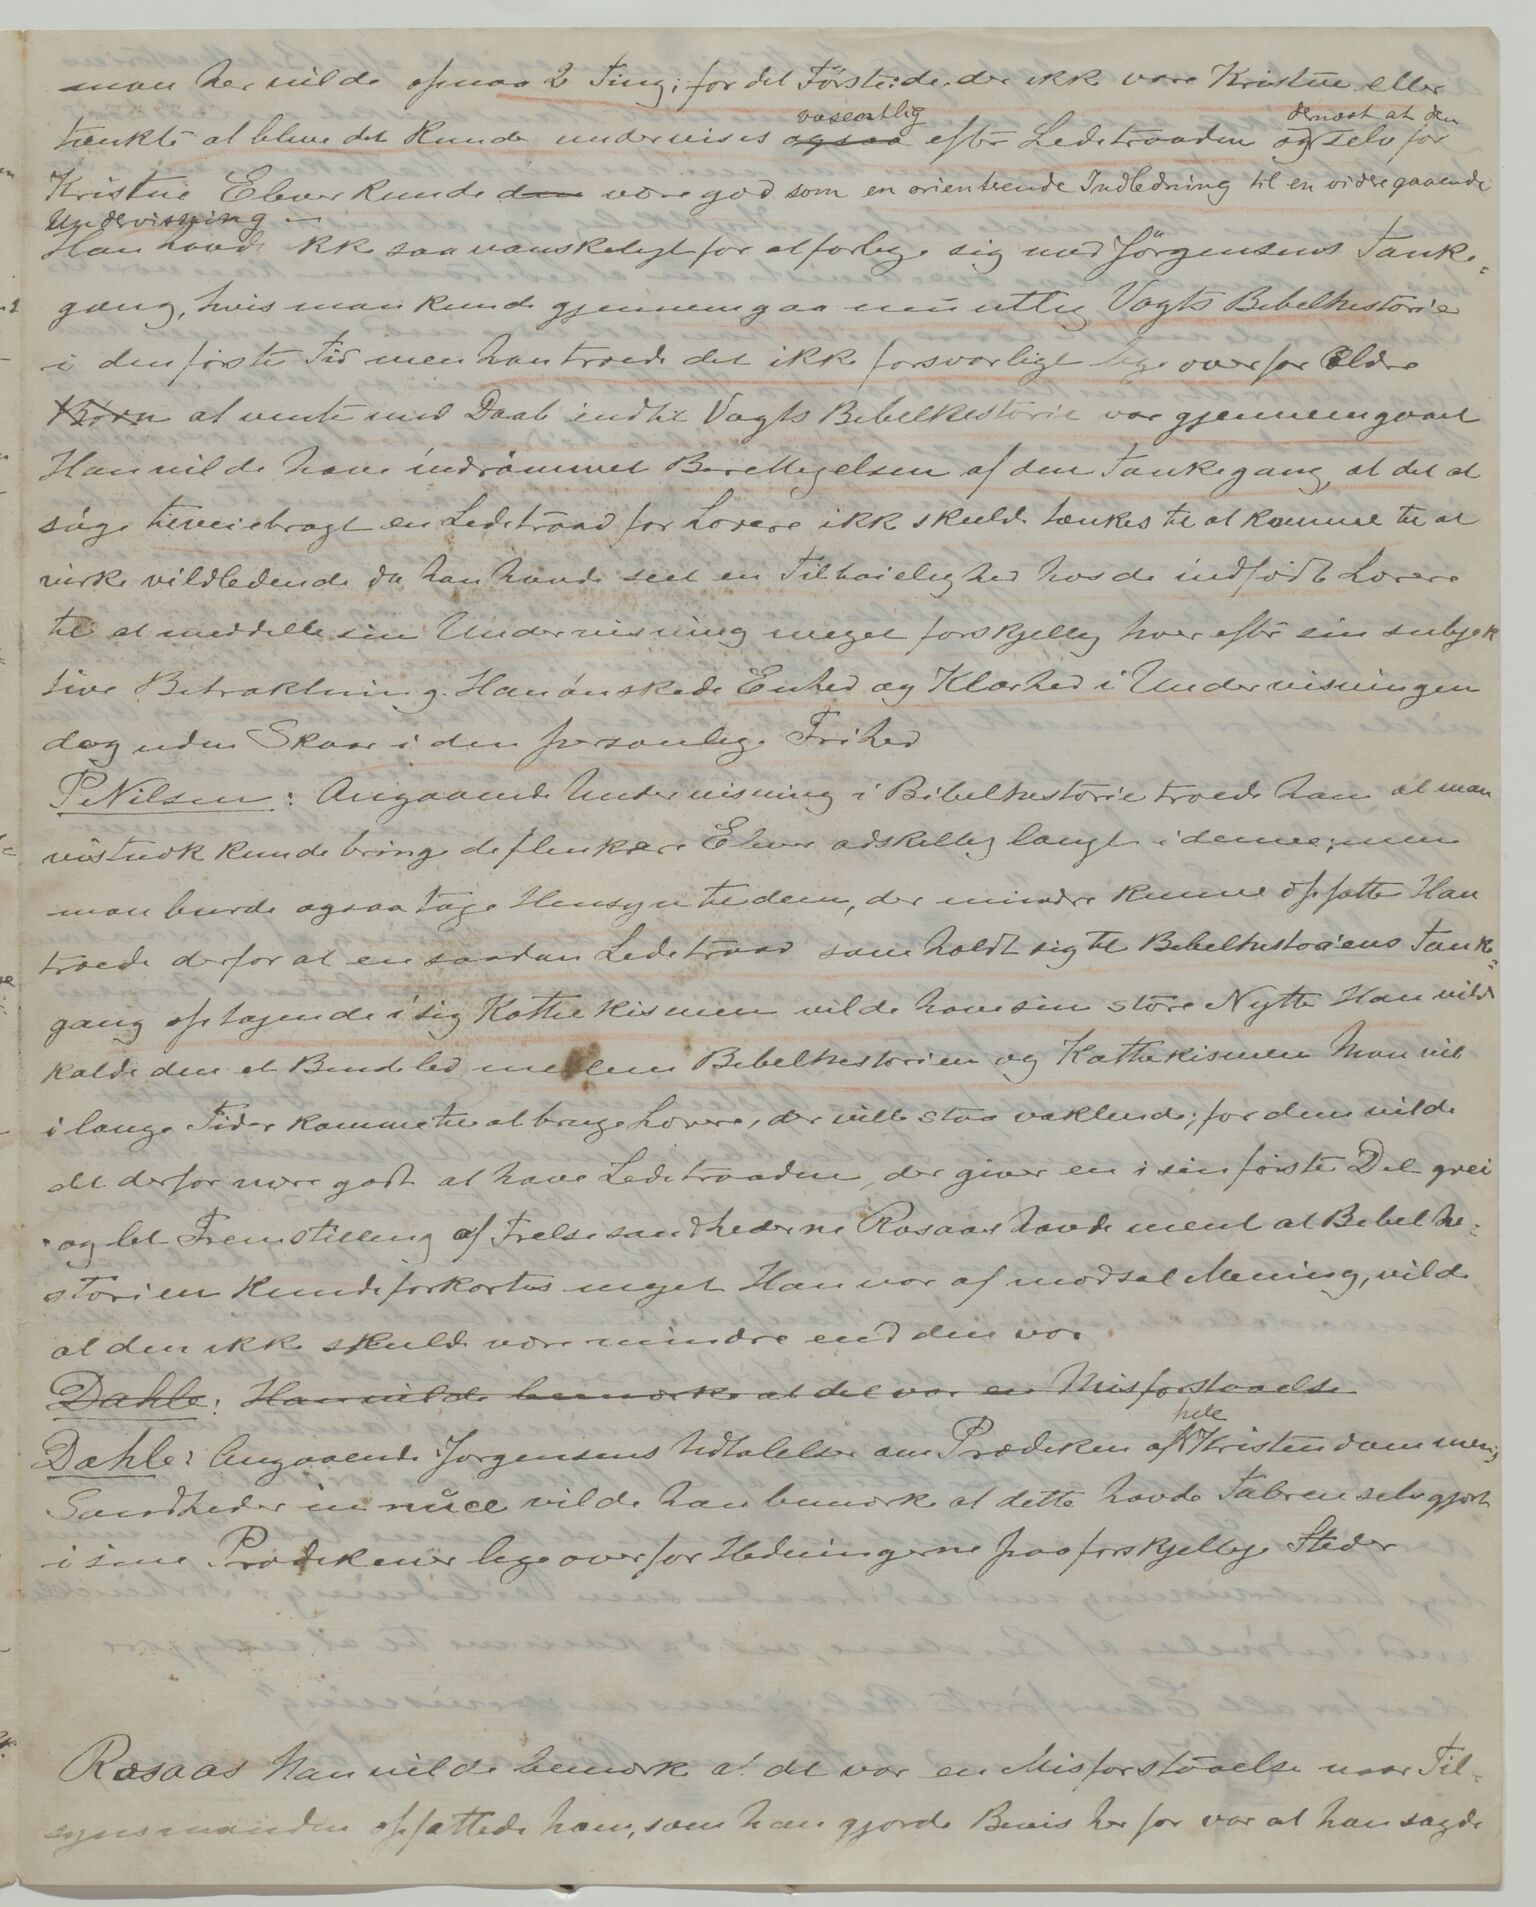 man her vilde opnaa 2 Ting; for det Første: de der ikke vare Kristne eller
tænkte at blive det kunde undervises væsentlig efter Ledetraaden dernæst at den selv for
Kristne Elever kunde være god som en orienterende Indledning til en videregaaende
Undervisning —
Han havde ikke saa vanskeligt for at forlige sig med Jörgensens Tanke-
gang, hvis man kunde gjennemgaa mundtlig Vogts Bibelhistorie
i den første Tid men han troede det ikke forsvarligt lige overfor Ældre
at vente med Daab indtil Vogts Bibelhistorie var gjennemgaaet
Han vilde have indrømmet Berettigelsen af den Tankegang, at det at
søge tilveiebragt en Ledetraad for Lærere ikke skulde tænkes til at komme til at
virke vildledende da han havde seet en Tilbøielighed hos de indfødte Lærere
til at meddelle sin Undervisning meget forskjellig hver efter sin subjek
tive Betraktning. Han ønskede Enhed og Klarhed i Undervisningen
dog uden Skaar i den personlige Frihed
P Nilsen: Angaaende Undervisning i Bibelhistorie troede han at man
vistnok kunde bringe de flinkere Elever adskillig langt i denne; men
man burde ogsaa tage Hensyn til dem, der mindre kunne opfatte Han
troede derfor at en saadan Ledetraad som holdt sig til Bibelhistoriens Tanke-
gang optagende i sig Kathekismen vilde have sin store Nytte Han vilde
kalde den et Bindeled mellem Bibelhistorien og Kathekismen Man vil
i lange Tider komme til at bruge Lærere, der ville staa vaklende; for dem vilde
det derfor være godt at have Ledetraaden, der giver en i sin første Del grei
og let Fremstilling af Frelsessandhederne Rosaas havde ment at Bibelhi-
storien kunde forkortes meget Han var af modsat Mening, vilde
at den ikke skulde være mindre end den var.
Dahle: Han vilde bemærke at det var en Misforstaaelse
Dahle: Angaaende Jørgensens Udtalelse om Prædiken af hele Kristendommens
Sandheder in nuce vilde han bemærke at dette havde Fabren selv gjort
i sine Prædikener lige overfor Hedningerne paa forskjellige Steder
Rosaas Han vilde bemærke at det var en Misforstaaelse naar Til-
synsmanden opfattede ham, som han gjorde Bevis herfor var at han sagde